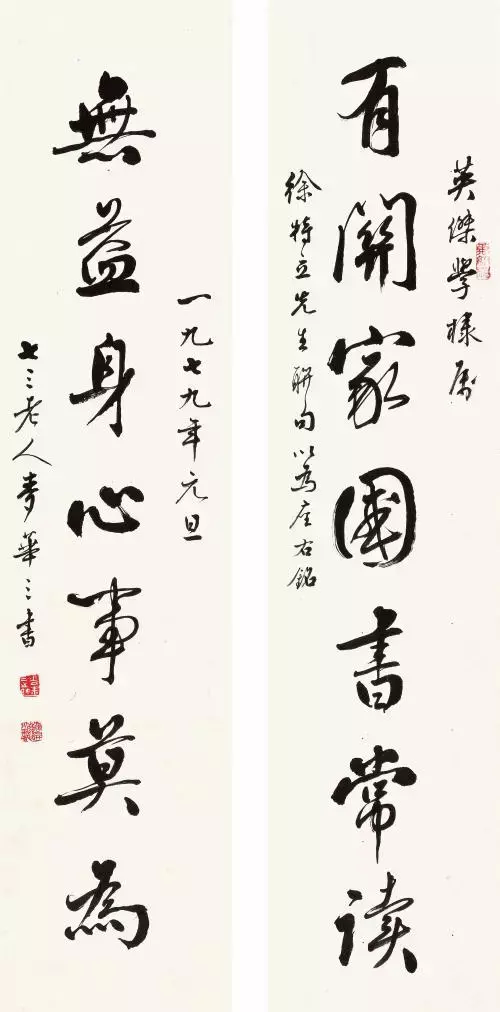 英傑學棣属
有關家國書常读
徐特立先生联句以為座右銘
一九七九年元旦
無益身心事莫為
七三老人麥華三書